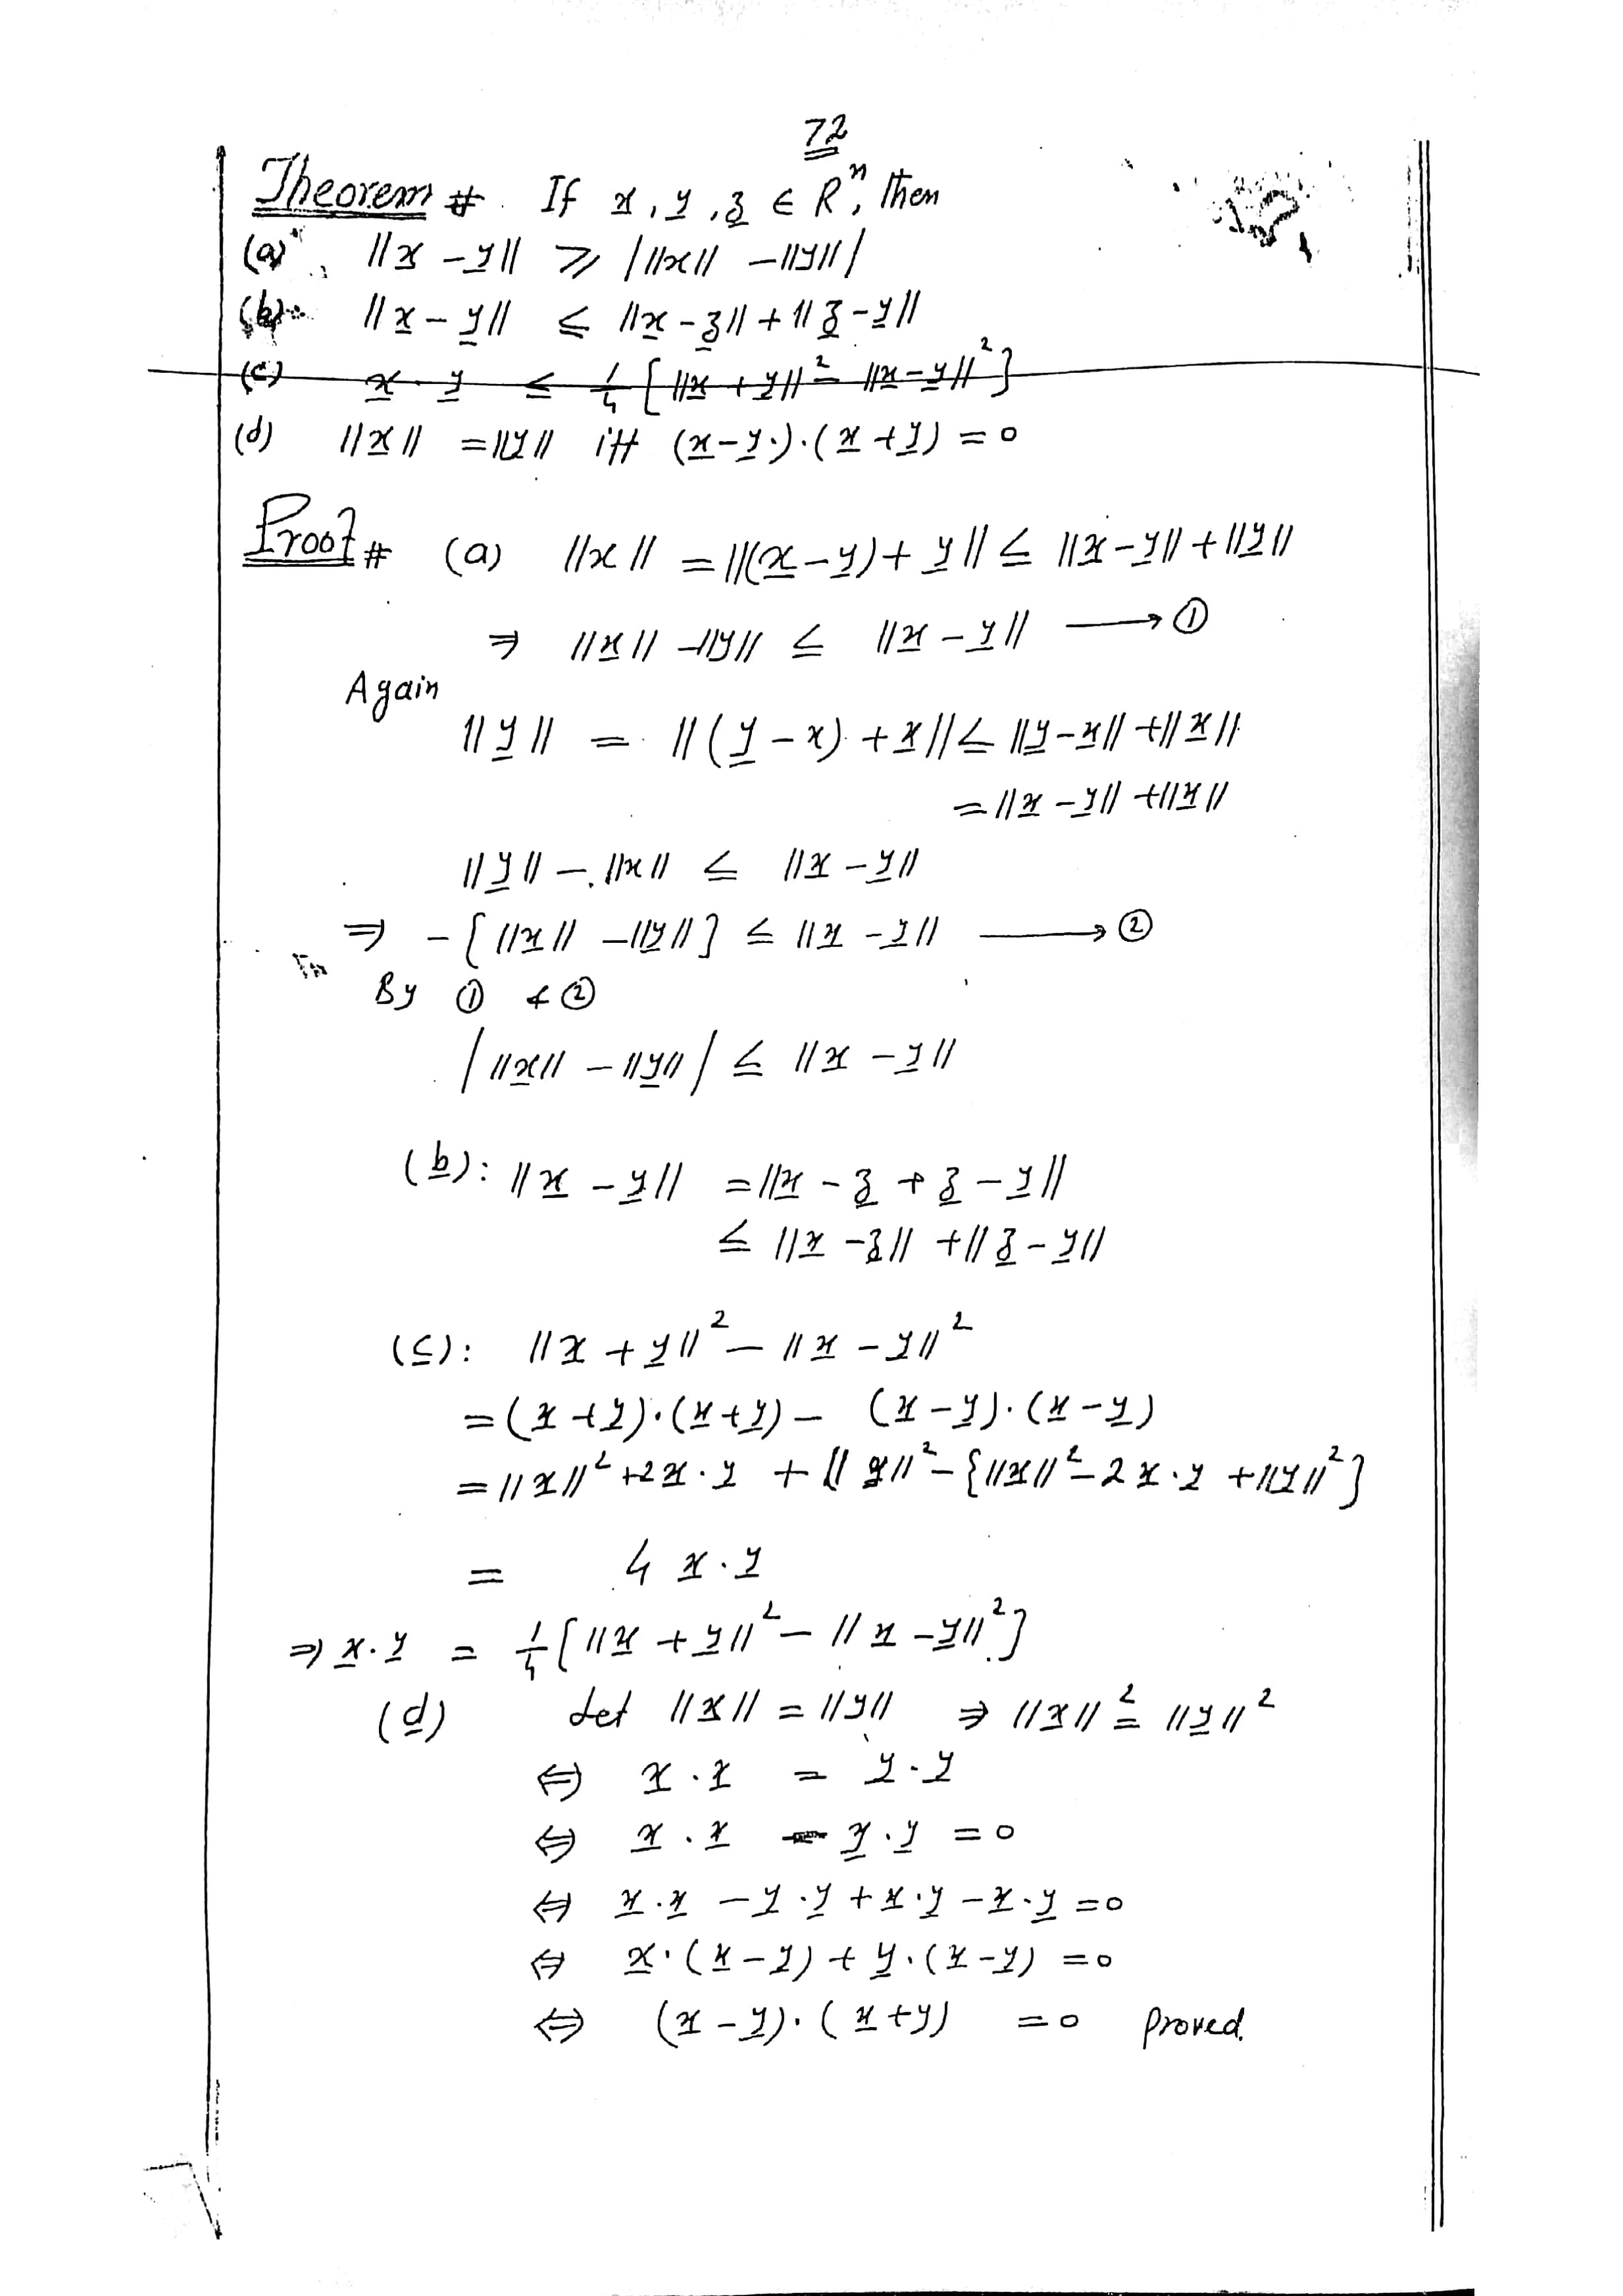 72
Theorem # If x, y, z ∈ Rⁿ, then
(a) ||x - y|| ≥ | ||x|| - ||y|| |
(b) ||x - y|| ≤ ||x - z|| + ||z - y||
(c) x . y ≤ 1/4 [ ||x + y||² - ||x - y||² ]
(d) ||x|| = ||y|| iff (x - y).(x + y) = 0
Proof # (a) ||x|| = ||(x - y) + y|| ≤ ||x - y|| + ||y||
⇒ ||x|| - ||y|| ≤ ||x - y|| ⟶ ①
Again
||y|| = ||(y - x) + x|| ≤ ||y - x|| + ||x||
= ||x - y|| + ||x||
||y|| - ||x|| ≤ ||x - y||
⇒ - [ ||x|| - ||y|| ] ≤ ||x - y|| ⟶ ②
By ① & ②
| ||x|| - ||y|| | ≤ ||x - y||
(b): ||x - y|| = ||x - z + z - y||
≤ ||x - z|| + ||z - y||
(c): ||x + y||² - ||x - y||²
= (x + y).(x + y) - (x - y).(x - y)
= ||x||² + 2x . y + ||y||² - { ||x||² - 2x . y + ||y||² }
= 4 x . y
⇒ x . y = 1/4 [ ||x + y||² - ||x - y||² ]
(d) Let ||x|| = ||y|| ⇒ ||x||² = ||y||²
⇔ x . x = y . y
⇔ x . x - y . y = 0
⇔ x . x - y . y + x . y - x . y = 0
⇔ x . (x - y) + y . (x - y) = 0
⇔ (x - y) . (x + y) = 0 Proved.